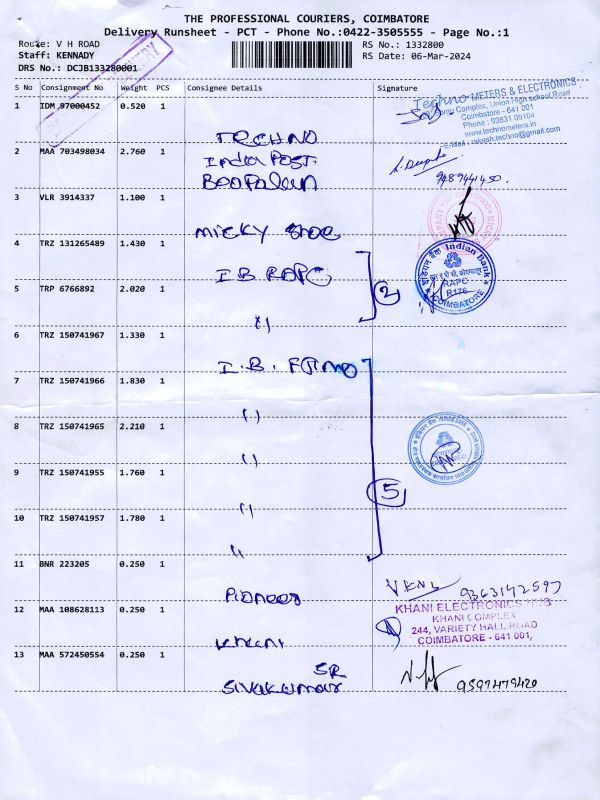 THE PROFESSIONAL COURIERS, COIMBATORE
Delivery Runsheet - PCT - Phone No.:0422-3505555 - Page No.:1
Route: V H ROAD
RS No.: 1332800
Staff: KENNADY
RS Date: 06-Mar-2024
DRS No.: DCJB133280001
S No Consignment No Weight PCS Consignee Details Signature
1 IDM 97000452 0.520 1
TECHNO
Techno METERS & ELECTRONICS
Complex, Union High school Road
Coimbatore - 641 001
Phone : 93631 05104
www.technometers.in
E-Mail : rakesh.techno@gmail.com
2 MAA 703498034 2.760 1
India POST
Boopalan
9489441450.
3 VLR 3914337 1.100 1
micky shoe
4 TRZ 131265489 1.430 1
I B RAPC
2
इंडियन बैंक Indian Bank
RAPC
R176
COIMBATORE
5 TRP 6766892 2.020 1
"
6 TRZ 150741967 1.330 1
I.B. FGMO
7 TRZ 150741966 1.830 1
"
8 TRZ 150741965 2.210 1
"
9 TRZ 150741955 1.760 1
"
5
10 TRZ 150741957 1.780 1
"
11 BNR 223205 0.250 1
Pioneer
9363142597
12 MAA 108628113 0.250 1
Khani
KHANI ELECTRONICS HUB
KHANI COMPLEX
244, VARIETY HALL ROAD
COIMBATORE - 641 001,
13 MAA 572450554 0.250 1
SR
Sivakumar
9597479420